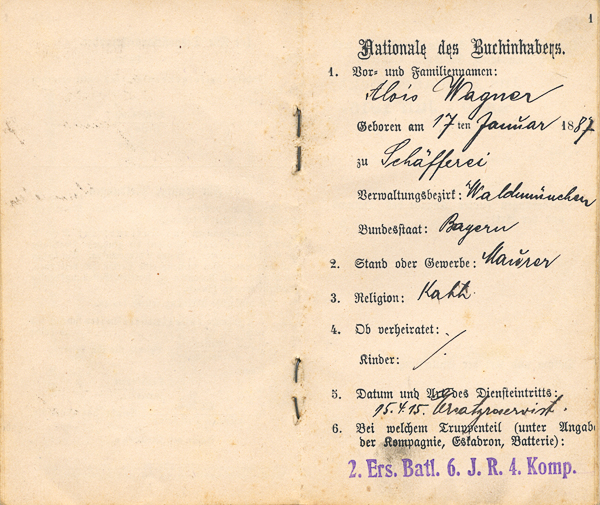 1
Nationale des Buchinhabers.
1. Vor- und Familiennamen:
Alois Wagner
Geboren am 17ten Januar 1887
zu Schäfferei
Verwaltungsbezirk: Waldmünchen
Bundesstaat: Bayern
2. Stand oder Gewerbe: Maurer
3. Religion: Kath
4. Ob verheiratet: ./.
Kinder:
5. Datum und Art des Diensteintritts:
15.4.15. Ersatzreservist.
6. Bei welchem Truppenteil (unter Angabe
der Kompagnie, Eskadron, Batterie):
2. Ers. Batl. 6. J. R. 4. Komp.